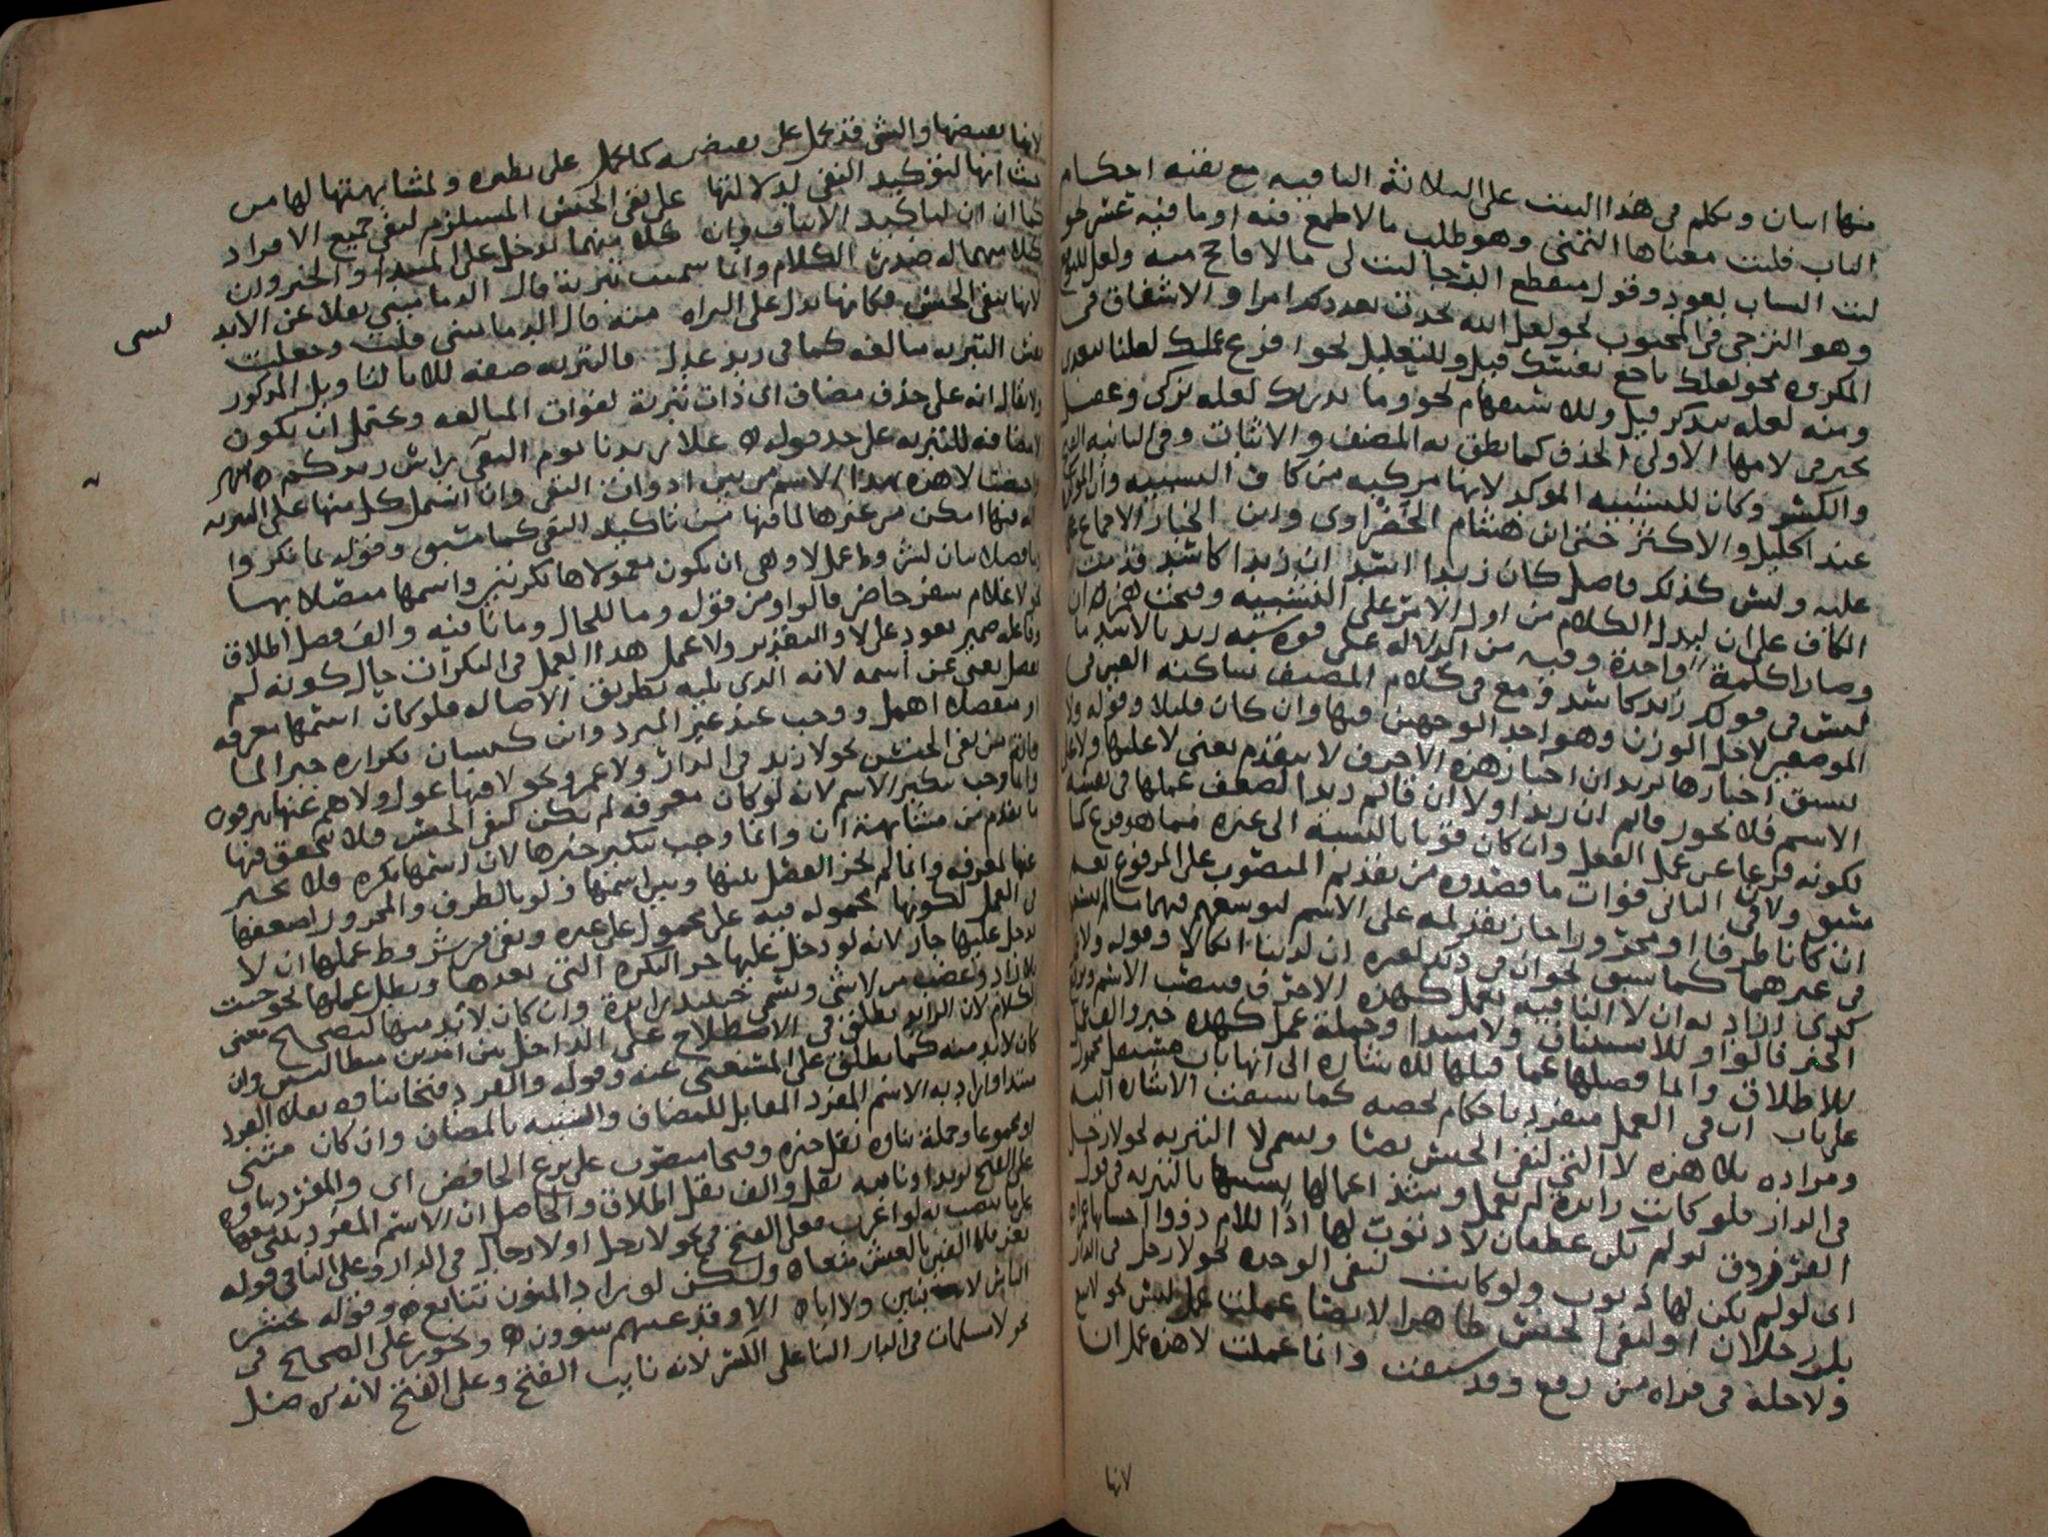 منها اسان وتكلم في هذا البيت على الثلاثة الباقيه مع بقيه احكام
الباب فليت معناها التمني وهو طلب ما لا طمع فيه او ما فيه عسر نحو
ليت الشباب يعود وقول منقطع الرجا ليت لي مالا فاحج منه ولعل للتوقع
وهو الترجي في المحبوب نحو لعل الله يحدث بعد ذلك امرا والاشفاق في
المكروه نحو لعلك باخع نفسك قيل وللتعليل نحو افرغ عملك لعلنا نتغدى
ومنه لعله يتذكر قيل وللاستفهام نحو وما يدريك لعله يزكى وعقيل
تجر في لامها الاولى الحذف كما نطق به المصنف والاثبات وفي الثانيه الفتح
والكسر وكان للتشبيه الموكد لانها مركبه من كاف التشبيه وان الموكدة
عند الخليل والاكثر حتى ابن هشام الخضراوي وابن الخباز الاجماع
عليه وليس كذلك فاصل كان زيدا اسد ان زيدا كاسد قدمت
الكاف على ان ليدل الكلام من اول الامر على التشبيه وفتحت همزة ان
وصارا كلمة واحدة وفيه من الدلاله على قوة شبه زيد بالاسد ما
ليس في قولك زيد كاسد ومع في كلام المصنف ساكنه العين في
الموضعين لاجل الوزن وهو احد الوجهين فيها وان كان قليلا وقوله ولا
تسبق اخبارها يريد ان اخبار هذه الاحرف لا يتقدم يعني لا عليها ولا على
الاسم فلا يجوز قائم ان زيدا ولا ان قائم زيدا لضعف عملها في نفسه
لكونه فرعا عن عمل الفعل وان كان قويا بالنسبه الى غيره مما هو فرع كما
سبق ولان في الثاني فوات ما قصدوه من تقديم المنصوب على المرفوع نعم
ان كانا ظرفا او مجرورا جاز تقديمه على الاسم لتوسعهم فيهما
في غيرهما كما سبق نحو ان في ذلك لعبره ان لدينا انكالا وقوله ولا
كذي اراد به ان لا النافيه تعمل كهذه الاحرف فتنصب الاسم وترفع
الخبر قالوا وللاستئناف ولا مبتدا وجملة عمل كهذه خبر والف
للاطلاق وانما فصلها عما قبلها للاشاره الى انها باب مستقل
على باب ان في العمل منفرد باحكام تخصه كما سبقت الاشاره اليه
ومراده بلا هذه لا التي لنفي الجنس نصا وتسمى لا التبريه نحو لا رجل
في الدار فلو كانت زايدة لم تعمل وشذ اعمالها في قول
الفرزدق لو لم تكن غطفان لا ذنوب لها اذا للام ذووا احسابها عمرا
اي لو لم يكن لها ذنوب ولو كانت لنفي الوحده نحو لا رجل في الدار
بل رجلان او لنفي الجنس ظاهرا لا نصا عملت عمل ليس نحو لا بيع
ولا خلة في قراه من رفع وقد سبقت وانما عملت لا هذه عمل ان
لانها
لانها نقيضها والشي قد يحمل على نقيضه كما يحمل على نظيره ولمشابهتها لها من
حيث انها لتوكيد النفي لدلالتها على نفي الجنس المستلزم لنفي جميع الافراد
كما ان ان لتاكيد الاثبات وان كلا منهما تدخل على المبتدا والخبر وان
كلا منهما له صدر الكلام وانما سميت تبرية قال الدماميني نقلا عن الابدي
لانها تنفي الجنس فكانها تدل على البراه منه قال الدماميني قلت وجعلت
نفس التبريه مبالغه كما في زيد عدل فالتبريه صفه للا بالتاويل المذكور
ولا يقال انه على حذف مضاف اي ذات تبرية لفوات المبالغه ويحتمل ان يكون
لا مضافه للتبريه على حد قوله علا زيدنا يوم النقى راس زيدكم
واختصت لا هذه بهذا الاسم من بين ادوات النفي وان اشتمل كل منها على التبريه
لما فيها من تاكيد النفي كما سبق وقوله بما نكروا
بيان لشروط عمل لا وهي ان يكون معمولاها نكرتين واسمها متصلا بها
نحو لا غلام سفر حاضر قالوا ومن قوله وما للحال وما نافيه والف فصل اطلاق
وفاعله ضمير يعود على لا والتقدير ولا عمل هذا العمل في النكرات حال كونه لم
يفصل يعني عن اسمه لانه الذي يليه بطريق الاصاله فلو كان اسمها معرفه
او منفصلا اهمل ووجب عند غير المبرد وابن كيسان تكراره جبرا لما
فاته من نفي الجنس نحو لا زيد في الدار ولا عمرو ونحو لا فيها غول ولا هم عنها ينزفون
وانما وجب تنكير الاسم لانه لو كان معرفه لم تكن لنفي الجنس فلا تتحقق فيها
ما تقدم من مشابهة ان وانما وجب تنكير خبرها لان اسمها نكره فلا يخبر
عنها بمعرفه وانما لم يجز الفصل بينها وبين اسمها ولو بالظرف والمجرور لضعفها
في العمل لكونها محموله فيه على محمول على غيره وبقي من شروط عملها ان لا
تدخل عليها جار لانه لو دخل عليها جر النكره التي بعدها وبطل عملها نحو جيت
بلا زاد وغضبت من لا شي وتسمى حينئذ زايدة وان كان لا بد منها لتصحيح معنى
الكلام لان الزايد يطلق في الاصطلاح على الداخل بين امرين متطالبين وان
كان لا بد منه كما يطلق على المستغنى عنه وقوله والفرد فتحا بناوه نعلا الفرد
مبتدا واراد به الاسم المفرد المقابل للمضاف والشبيه بالمضاف وان كان مثنى
او مجموعا وجملة بناوه نقل خبره وفتحا منصوب على نزع الخافض اي والمفرد بناوه
على الفتح نقل والف نقل اطلاق والحاصل ان الاسم المفرد يبنى معها
على ما ينصب به لو اعرب فعلى الفتح في نحو لا رجل او لا رجال في الدار وعلى اليا في قوله
تعز فلا الفين بالعيش متعا ولكن لوراد المنون تتابع وقوله يحشر
الناس لا بنين ولا ابا الا وقد عنتهم شوون ويجوز على الصحيح في
نحو لا مسلمات في الدار البنا على الكسر لانه نايب الفتح وعلى الفتح لانه